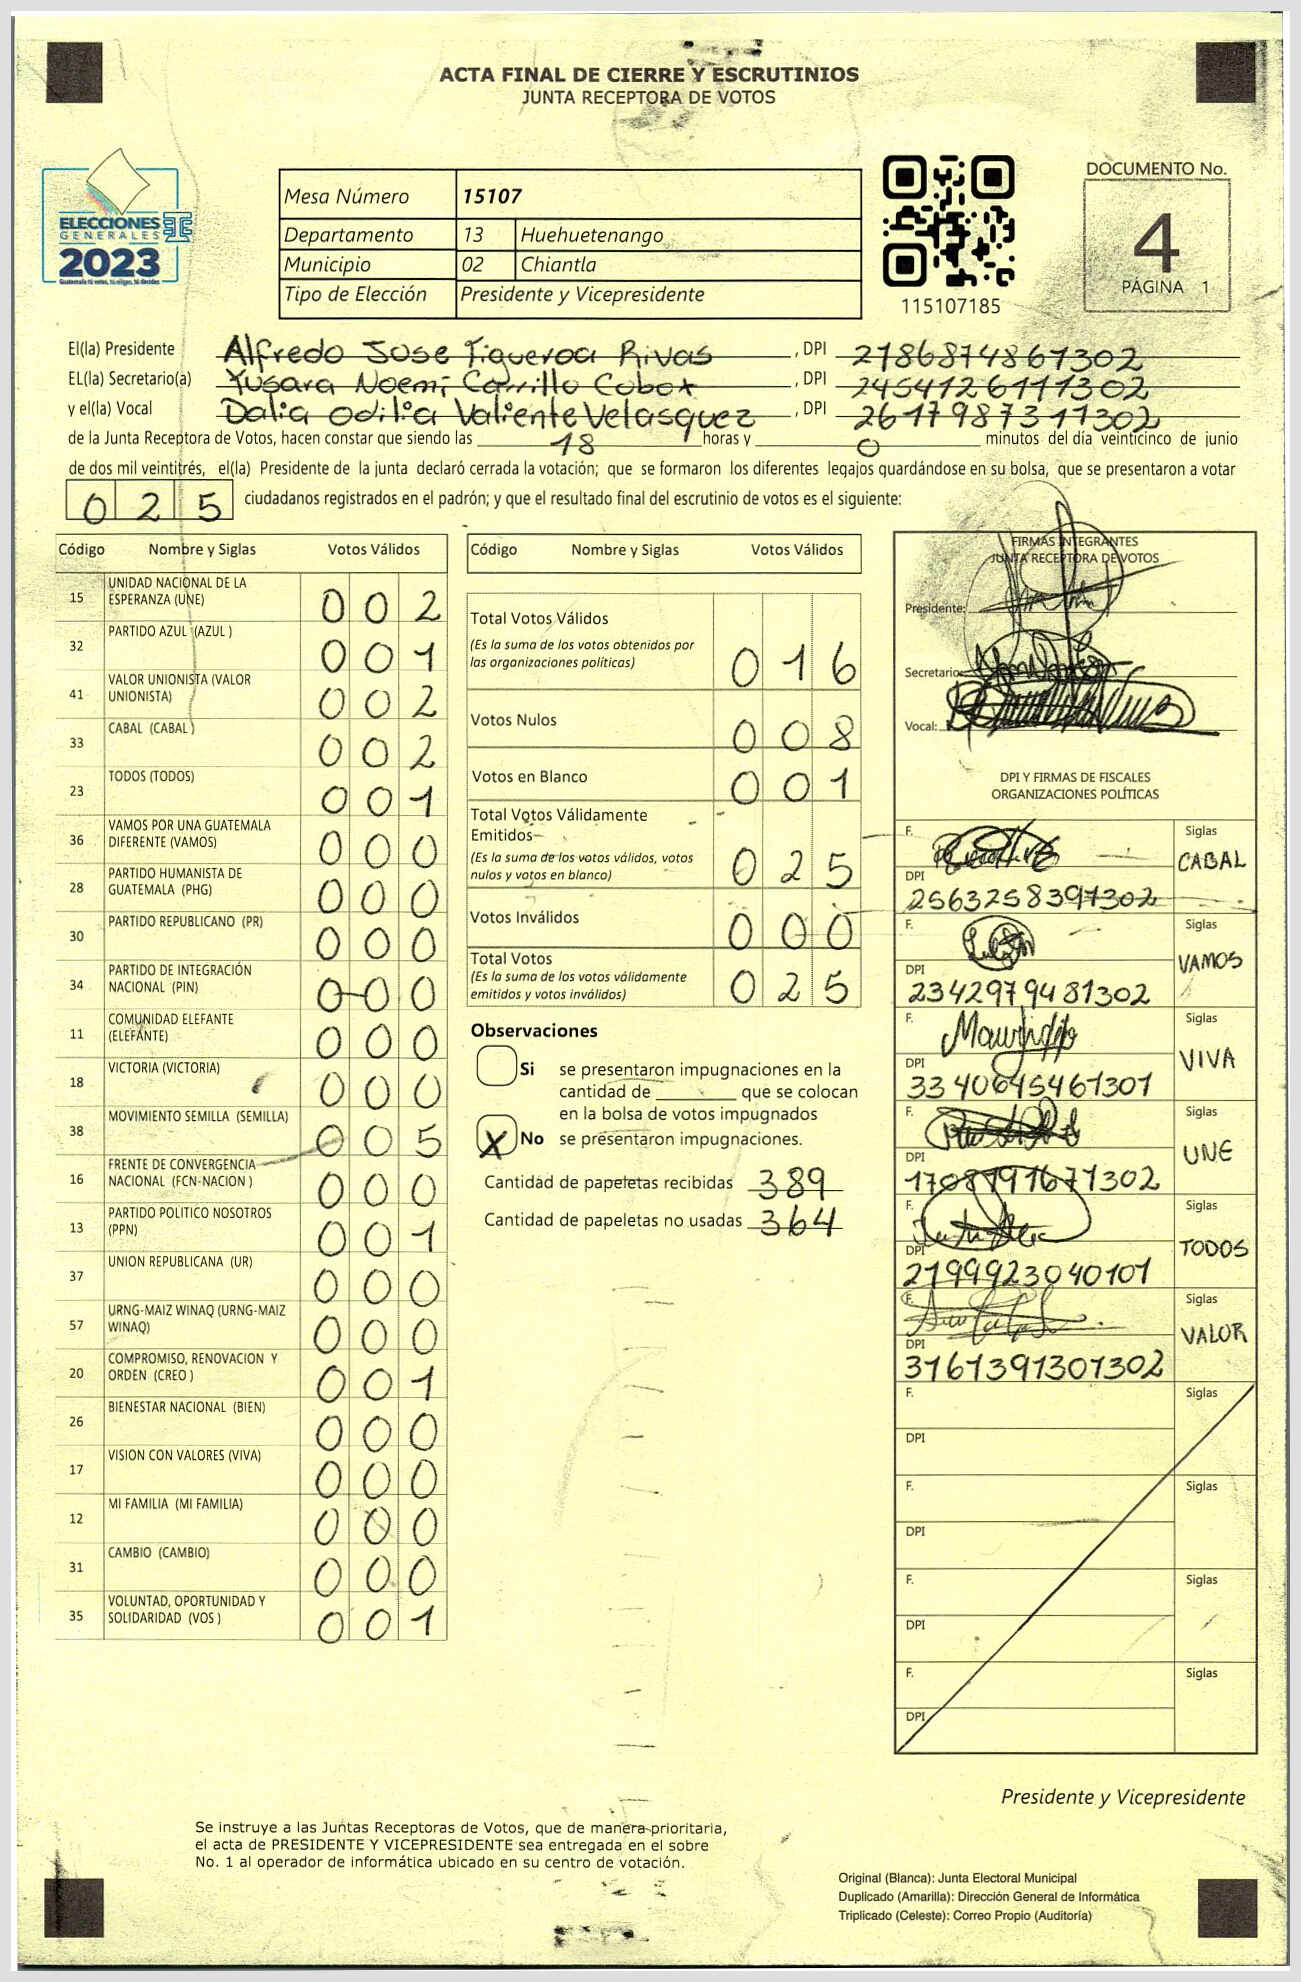 ACTA FINAL DE CIERRE Y ESCRUTINIOS
JUNTA RECEPTORA DE VOTOS
ELECCIONES
GENERALES
2023
Guatemala tú votas, tú eliges, tú decides
Mesa Número 15107
Departamento 13 Huehuetenango
Municipio 02 Chiantla
Tipo de Elección Presidente y Vicepresidente
115107185
DOCUMENTO No.
4
PÁGINA 1
El(la) Presidente Alfredo Jose Figueroa Rivas, DPI 2186874861302
EL(la) Secretario(a) Yusara Noemi Carrillo Cobox, DPI 2454126111302
y el(la) Vocal Dalia Odilia Valiente Velasquez, DPI 2617987311302
de la Junta Receptora de Votos, hacen constar que siendo las 18 horas y 0 minutos del día veinticinco de junio
de dos mil veintitrés, el(la) Presidente de la junta declaró cerrada la votación; que se formaron los diferentes legajos guardándose en su bolsa, que se presentaron a votar
025 ciudadanos registrados en el padrón; y que el resultado final del escrutinio de votos es el siguiente:
Código Nombre y Siglas Votos Válidos
15 UNIDAD NACIONAL DE LA ESPERANZA (UNE) 002
32 PARTIDO AZUL (AZUL ) 001
41 VALOR UNIONISTA (VALOR UNIONISTA) 002
33 CABAL (CABAL ) 002
23 TODOS (TODOS) 001
36 VAMOS POR UNA GUATEMALA DIFERENTE (VAMOS) 000
28 PARTIDO HUMANISTA DE GUATEMALA (PHG) 000
30 PARTIDO REPUBLICANO (PR) 000
34 PARTIDO DE INTEGRACIÓN NACIONAL (PIN) 000
11 COMUNIDAD ELEFANTE (ELEFANTE) 000
18 VICTORIA (VICTORIA) 000
38 MOVIMIENTO SEMILLA (SEMILLA) 005
16 FRENTE DE CONVERGENCIA NACIONAL (FCN-NACION ) 000
13 PARTIDO POLITICO NOSOTROS (PPN) 001
37 UNION REPUBLICANA (UR) 000
57 URNG-MAIZ WINAQ (URNG-MAIZ WINAQ) 000
20 COMPROMISO, RENOVACION Y ORDEN (CREO ) 001
26 BIENESTAR NACIONAL (BIEN) 000
17 VISION CON VALORES (VIVA) 000
12 MI FAMILIA (MI FAMILIA) 000
31 CAMBIO (CAMBIO) 000
35 VOLUNTAD, OPORTUNIDAD Y SOLIDARIDAD (VOS ) 001
Código Nombre y Siglas Votos Válidos
Total Votos Válidos 016
(Es la suma de los votos obtenidos por
las organizaciones políticas)
Votos Nulos 008
Votos en Blanco 001
Total Votos Válidamente
Emitidos 025
(Es la suma de los votos válidos, votos
nulos y votos en blanco)
Votos Inválidos 000
Total Votos 025
(Es la suma de los votos válidamente
emitidos y votos inválidos)
Observaciones
Si se presentaron impugnaciones en la
cantidad de ________ que se colocan
en la bolsa de votos impugnados
X No se presentaron impugnaciones.
Cantidad de papeletas recibidas 389
Cantidad de papeletas no usadas 364
FIRMAS INTEGRANTES
JUNTA RECEPTORA DE VOTOS
Presidente:
Secretario:
Vocal:
DPI Y FIRMAS DE FISCALES
ORGANIZACIONES POLÍTICAS
F. Siglas CABAL
DPI 2563258391302
F. Siglas VAMOS
DPI 2342979481302
F. Siglas VIVA
DPI 3340645461301
F. Siglas UNE
DPI 1708791671302
F. Siglas TODOS
DPI 2199923040101
F. Siglas VALOR
DPI 3161391301302
F. Siglas
DPI
F. Siglas
DPI
F. Siglas
DPI
F. Siglas
DPI
Presidente y Vicepresidente
Se instruye a las Juntas Receptoras de Votos, que de manera prioritaria,
el acta de PRESIDENTE Y VICEPRESIDENTE sea entregada en el sobre
No. 1 al operador de informática ubicado en su centro de votación.
Original (Blanca): Junta Electoral Municipal
Duplicado (Amarilla): Dirección General de Informática
Triplicado (Celeste): Correo Propio (Auditoría)